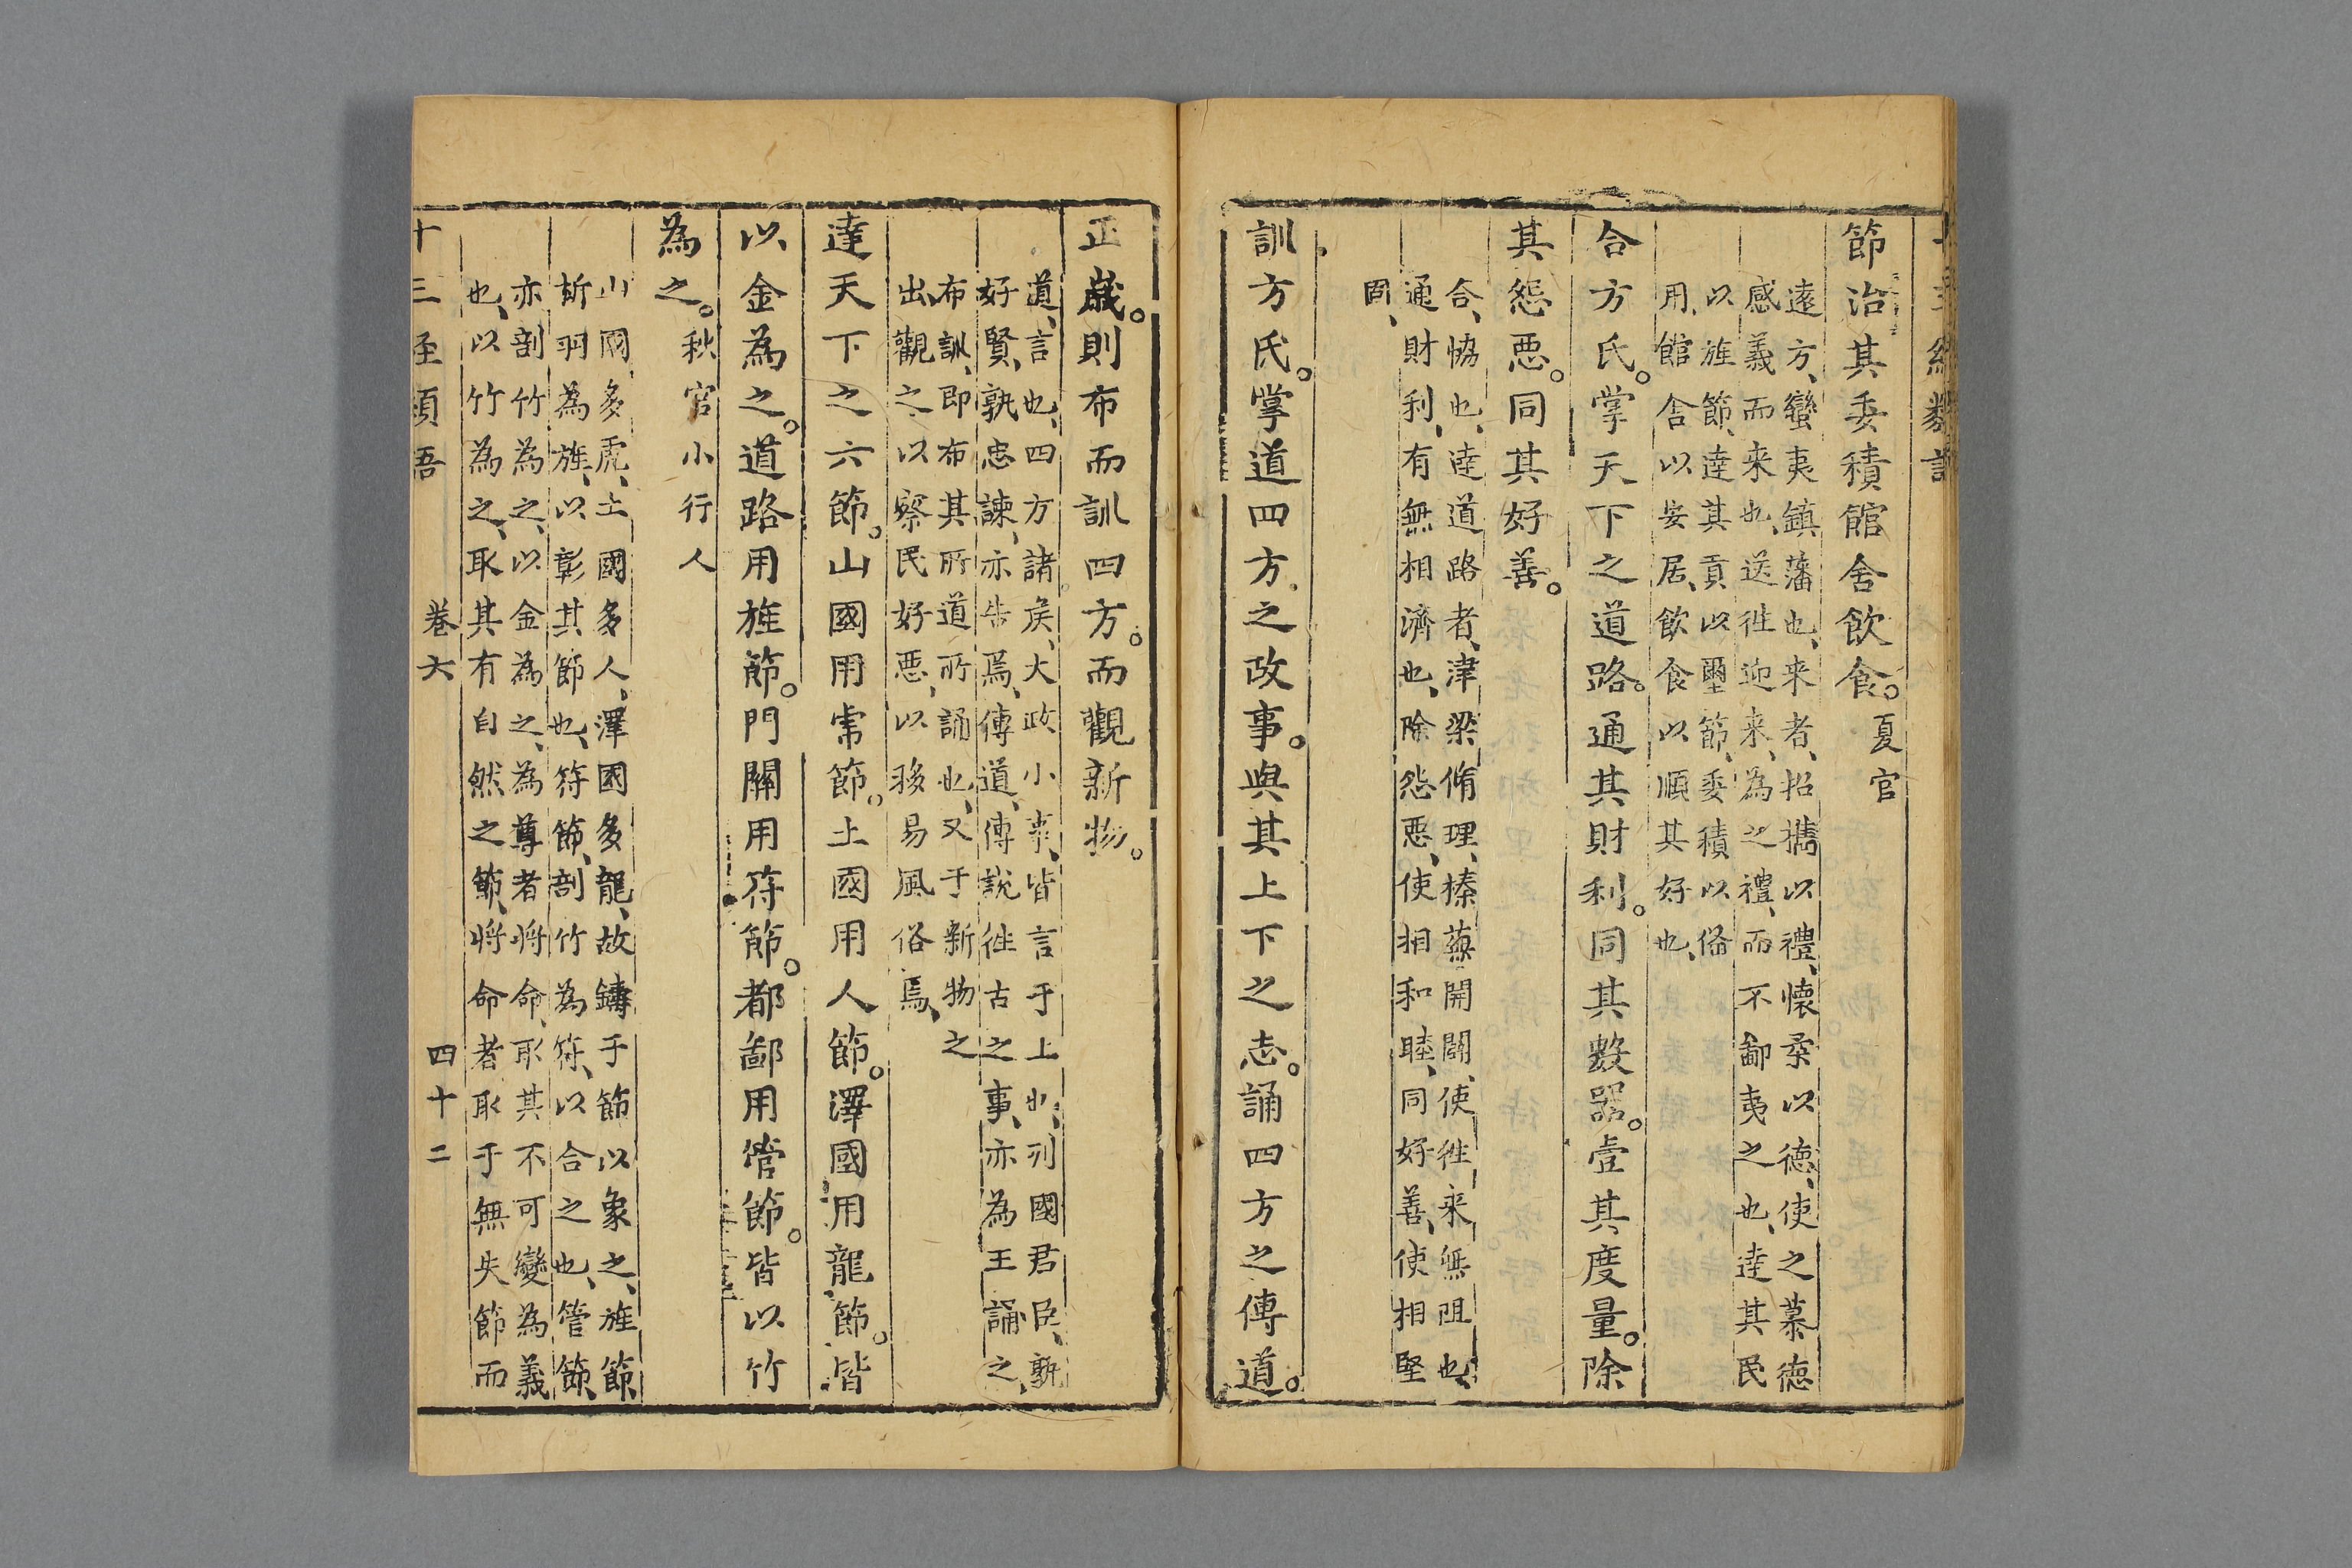 節治其委積館舍飲食。夏官
遠方、蠻夷鎮藩也、来者、招攜以禮、懷柔以德、使之慕德
感義而来也、送徃迎来、為之禮、而不鄙夷之也、逹其民
以旌節、逹其貢以璽節、委積以俻
用、館舍以安居、飲食以順其好也、
合方氏。掌天下之道路。通其財利。同其數器。壹其度量。除
其怨惡。同其好善。
合、恊也、逹道路者、津梁脩理、榛蕪開闢、使徃来無阻也、
通財利、有無相濟也、除怨惡、使相和睦、同好善、使相堅
固、
訓方氏。掌道四方之政事。與其上下之志。誦四方之傳道。
正歲。則布而訓四方。而觀新物。
道、言也、四方諸侯、大政小事、皆言于上也、列國君臣、孰
好賢、孰忠諫、亦告焉、傳道、傳說徃古之事、亦為王誦之、
布訓、即布其所道所誦也、又于新物之
出、觀之以察民好惡、以移易風俗焉、
達天下之六節。山國用虎節。土國用人節。澤國用龍節。皆
以金為之。道路用旌節。門關用符節。都鄙用管節。皆以竹
為之。秋官小行人
山國多虎、土國多人、澤國多龍、故鑄于節以象之、旌節、
析羽為旌、以彰其節也、符節、剖竹為符、以合之也、管節、
亦剖竹為之、以金為之、為尊者將命、取其不可變為義
也、以竹為之、取其有自然之節、將命者取于無失節而
十三經類語
卷六
四十二